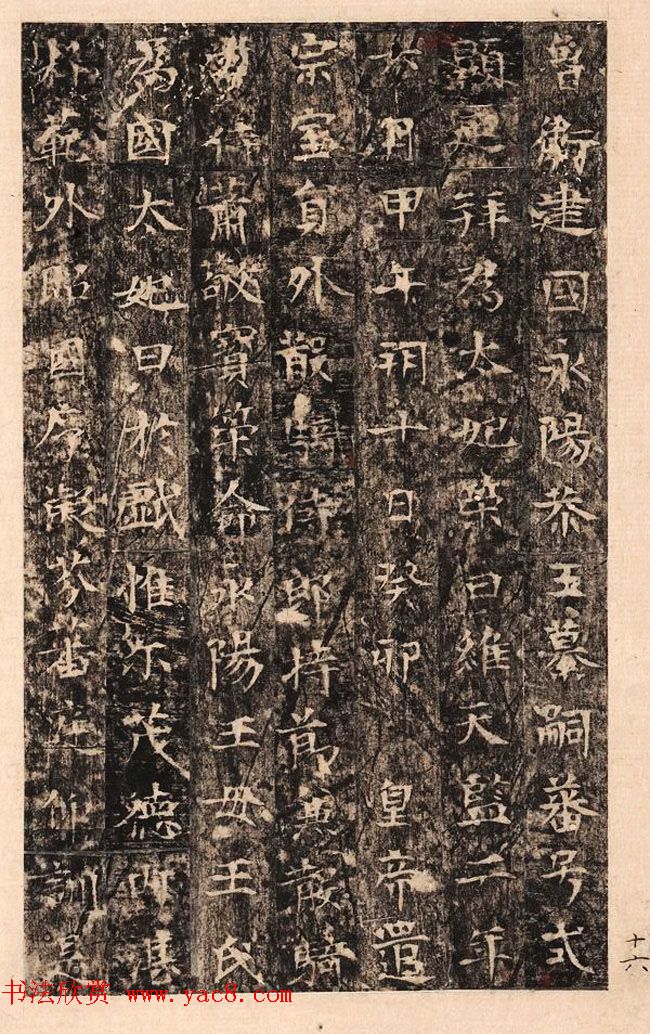 魯衛建國永陽恭王纂嗣蕃号式
顯拜為太妃策曰維天監二年
六月甲午朔十日癸卯 皇帝遣
宗室員外散騎侍郎持節兼散騎
常侍蕭敬寳策命永陽王母王氏
為國太妃曰於戲惟尔茂德內湛
粹範外昭國序凝芬蕃庭仰訓是
十六
书法欣赏 www.yac8.com